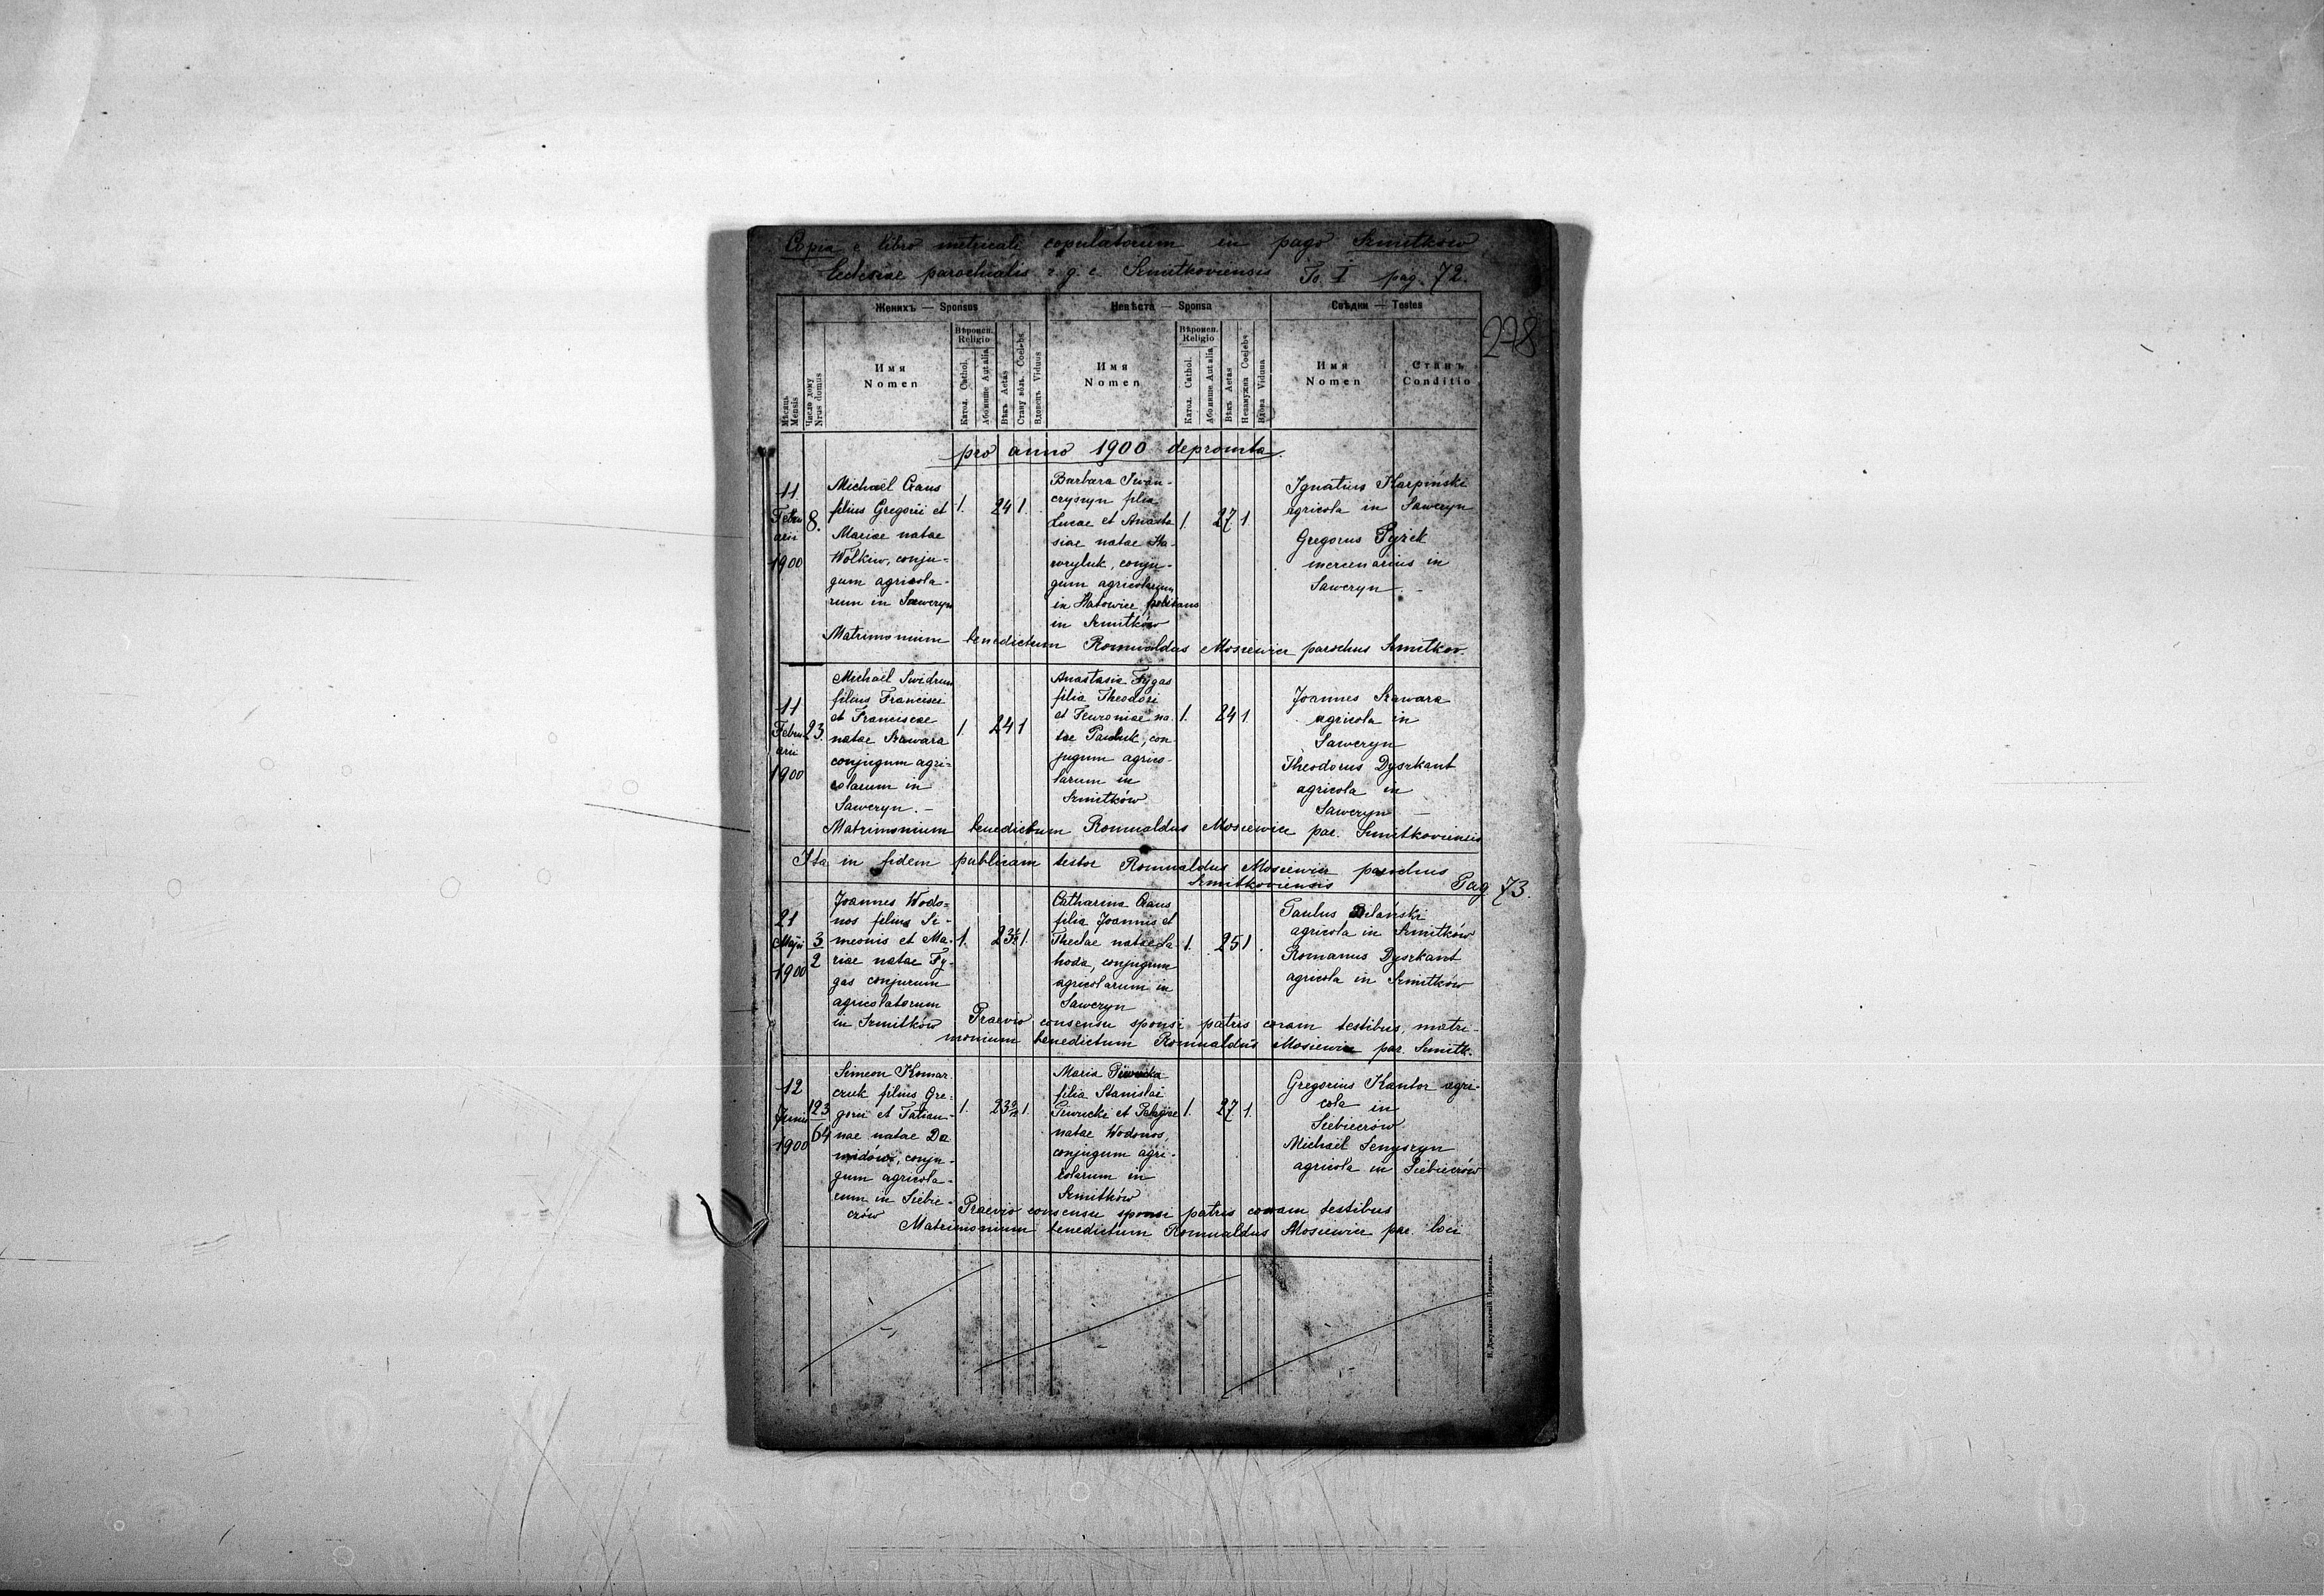 Copia e libro metricali copulatorum in pago Szmitków
Ecclesiae parochialis r. g. c. Szmitkoviensis To. I pag. 72.
278
Женихъ — Sponsus
Невѣста — Sponsa
Свѣдки — Testes
Мѣсяць Mensis
Число дому Nrus domus
Имя Nomen
Вѣроисп. Religio
Катол. Cathol.
Або инше Aut alia
Вѣкъ Aetas
Стану вôль. Coelebs
Вдовець Viduus
Имя Nomen
Вѣроисп. Religio
Катол. Cathol.
Або инше Aut alia
Вѣкъ Aetas
Незамужна Coelebs
Вдова Vidua
Имя Nomen
Станъ Conditio
pro anno 1900 depromta.
11
Febru
arii
1900
8.
Michael Czaus
filius Gregorii et
Mariae natae
Wołkiw, conju-
gum agricola-
rum in Saweryn
1. 24 1.
Barbara Iwan-
cryszyn filia
Lucae et Anasta
siae natae Ha-
wryluk, conju-
gum agricolarum
in Chatowice
in Szmitków
1. 27 1.
Ignatius Karpiński
agricola in Saweryn
Gregorus Pyżik
mercenarius in
Saweryn
Matrimonium benedictum Romualdus Mosiewicz parochus Szmitkov.
11
Febru
arii
1900
23.
Michael Swidrum
filius Francisci
et Franciscae
natae Szawara
conjugum agri-
colarum in
Saweryn. —
1. 24 1
Anastasia Fygas
filia Theodori
et Fewroniae na
tae Pawluk, con
jugum agrico-
larum in
Szmitków
1. 24 1
Joannes Szawara
agricola in
Saweryn
Theodorus Dyszkant
agricola in
Saweryn —
Matrimonium benedictum Romualdus Mosiewicz par. Szmitkoviensis
Ita in fidem publicam testor Romualdus Mosiewicz parochus
Szmitkoviensis
Pag 73.
21
Maji
1900
3
2
Joannes Wodo-
nos filius Si-
meonis et Ma-
riae natae Fy-
gas conjugum
agricolatorum
in Szmitków
1. 23 1.
Catharina Czaus
filia Joannis et
Theclae natae La
hoda, conjugum
agricolarum in
Saweryn
1. 25 1.
Paulus Bilański
agricola in Szmitków
Romanus Dyszkant
agricola in Szmitków
Praevio consensu sponsi patris coram testibus, matri-
monium benedictum Romualdus Mosiewicz par. Szmitk.
12
Junii
1900
123
64
Simeon Komar
czuk filius Gre-
gorii et Tatian-
nae natae De
midów, conju-
gum agricola-
rum in Siebie-
czów
1. 23 1.
Maria Piwnicka
filia Stanislai
Piwnicki et Pelagiae
natae Wodonos,
conjugum agri-
colarum in
Szmitków
1. 27 1.
Gregorius Kantor agri-
cola in
Siebieczów
Michael Senyszyn
agricola in Siebieczów
Praevio consensu sponsi patris coram testibus
Matrimonium benedictum Romualdus Mosiewicz par. loci